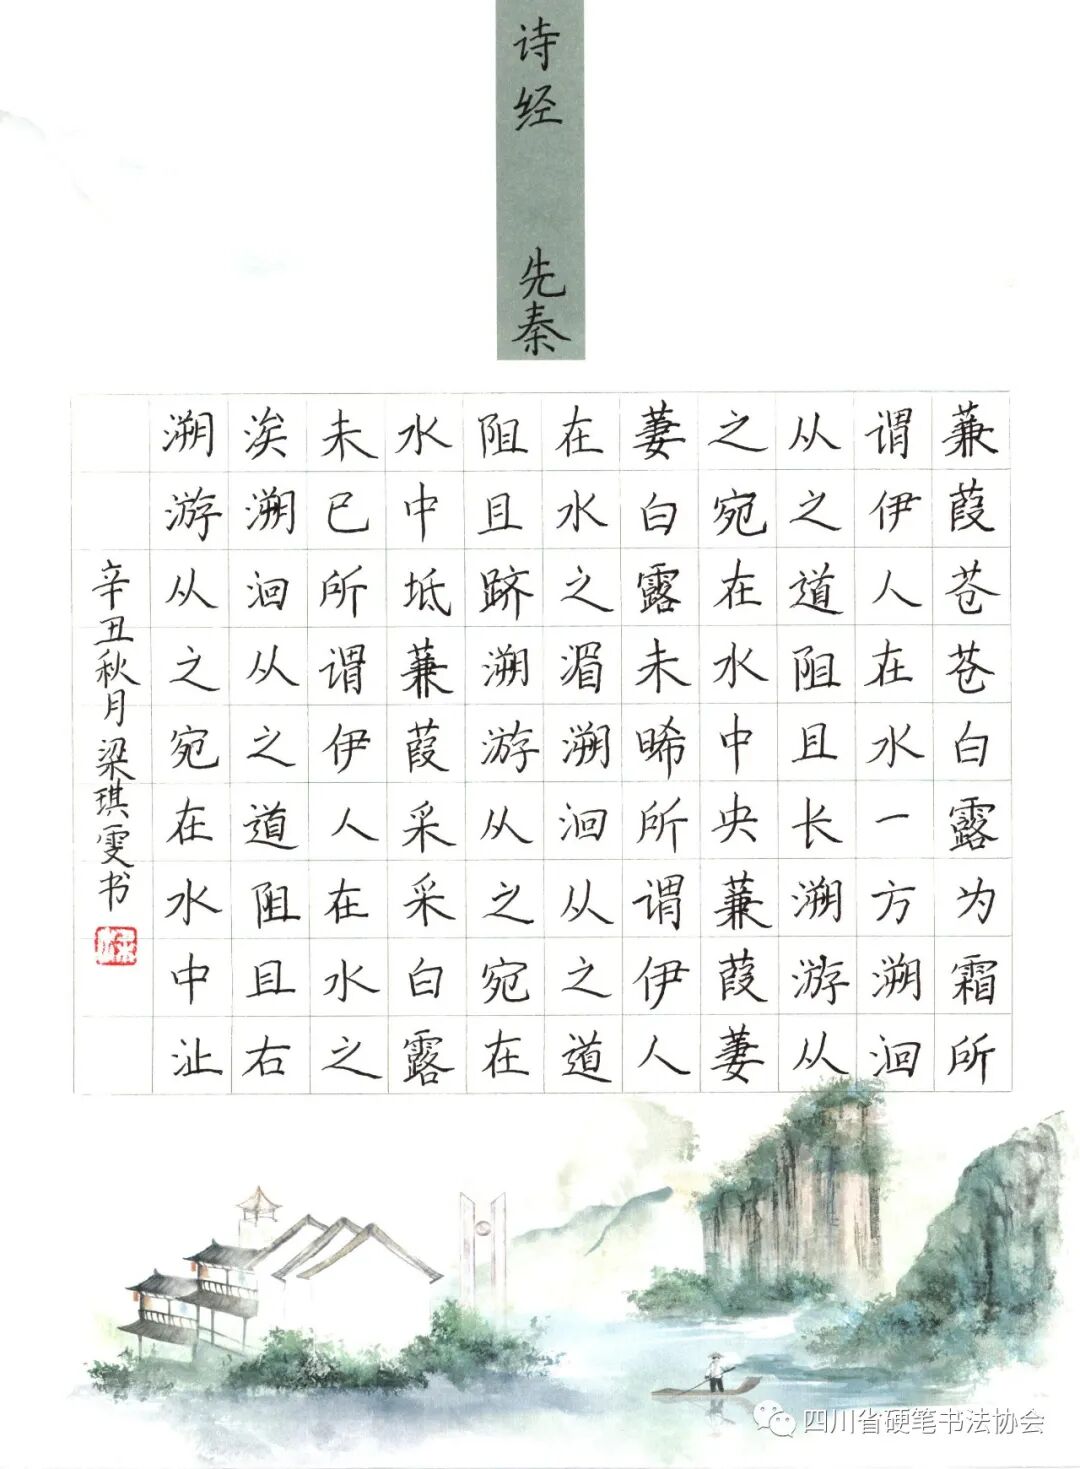 诗经 先秦
蒹葭苍苍白露为霜所
谓伊人在水一方溯洄
从之道阻且长溯游从
之宛在水中央蒹葭萋
萋白露未晞所谓伊人
在水之湄溯洄从之道
阻且跻溯游从之宛在
水中坻蒹葭采采白露
未已所谓伊人在水之
涘溯洄从之道阻且右
溯游从之宛在水中沚
辛丑秋月梁琪雯书
四川省硬笔书法协会